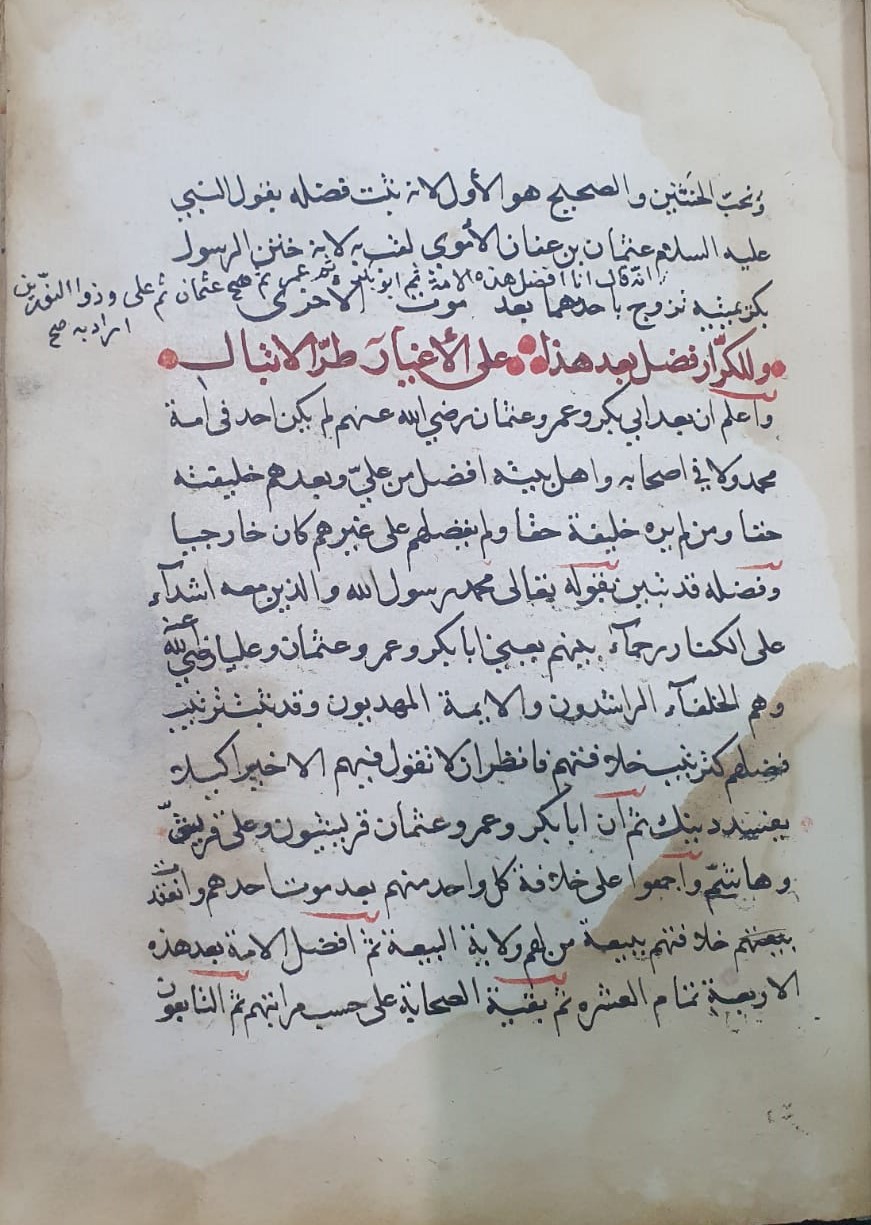 ونحب الختنين والصحيح هو الأول لانه يثبت فضله بقول النبي
عليه السلام عثمان بن عفان الأموي لقب به لانه ختن الرسول
انه قال انا افضل هذه الامة ثم ابو بكر ثم عمر ثم عثمان ثم على وذوا النورين
اراد به صح
تزوج باحدهما بعد موت الاخرى
وللكرّار فضل بعد هذا على الأغيار طرّا لا تبال
واعلم ان بعد ابي بكر وعمر وعثمان رضي الله عنهم لم يكن احد فى امة
محمد ولا في اصحابه واهل بيته افضل من عليّ وبعدهم خليفته
حقا ومن لم يره خليفة حقا ولم يفضلهم على غيرهم كان خارجيا
وفضله قد تبين بقوله تعالى محمد رسول الله والذين معه اشدآء
على الكفار رحمآء بينهم يعني ابا بكر وعمر وعثمان وعليا رضي الله عنهم
وهم الخلفآء الراشدون والايمة المهديون وقد ثبت ترتيب
فضلهم كترتيب خلافتهم فانظر ان لا تقول فيهم الا خيرا كيلا
يفسد دينك ثم ان ابا بكر وعمر وعثمان قريشيون وعلى قريشيّ
وهاشميّ واجمعوا على خلافة كل واحد منهم بعد موت احدهم وانعقدت
خلافتهم ببيعة من لهم ولاية البيعة ثم افضل الامة بعد هذه
الاربعة تمام العشره ثم بقية الصحابة على حسب مراتبهم ثم التابعون